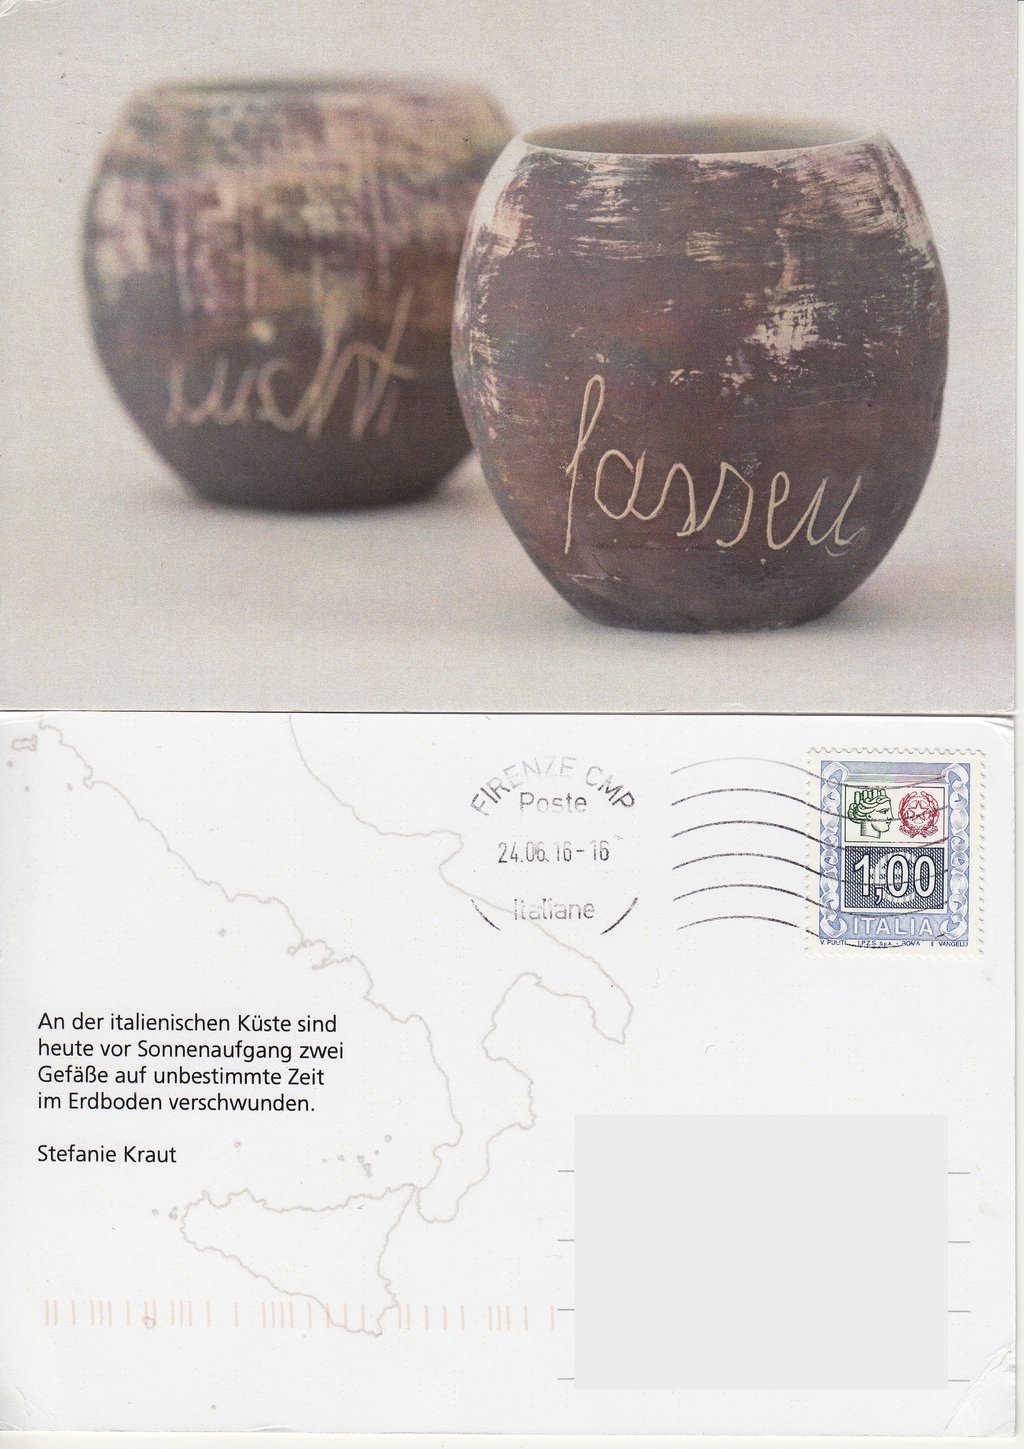 nicht
fassen
FIRENZE CMP
Poste
24.06.16-16
Italiane
1,00
ITALIA
V. PULITI I.P.Z.S. S.p.A. - ROMA E. VANGELLI
An der italienischen Küste sind
heute vor Sonnenaufgang zwei
Gefäße auf unbestimmte Zeit
im Erdboden verschwunden.
Stefanie Kraut